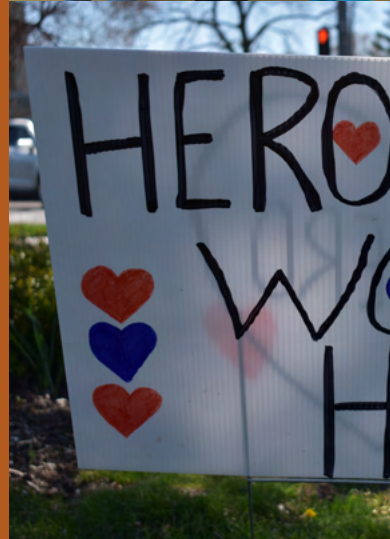 HERO
WO
H